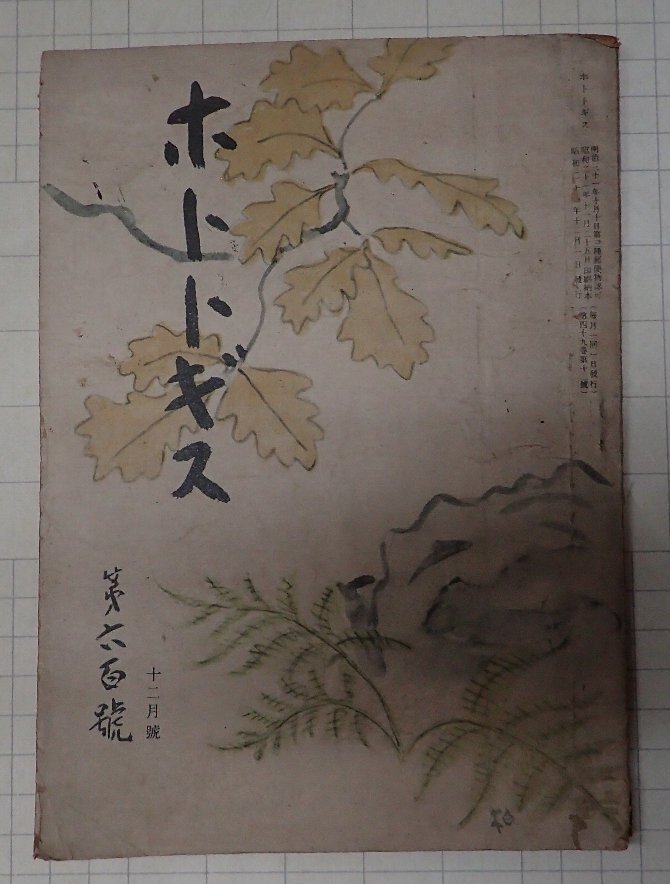 ホトトギス
明治三十一年十月十日第三種郵便物認可（毎月一回一日發行）
昭和二十一年十一月二十五日印刷納本
昭和二十一年十二月一日發行（第四十九巻第十二號）
ホトトギス
第六百號
十二月號